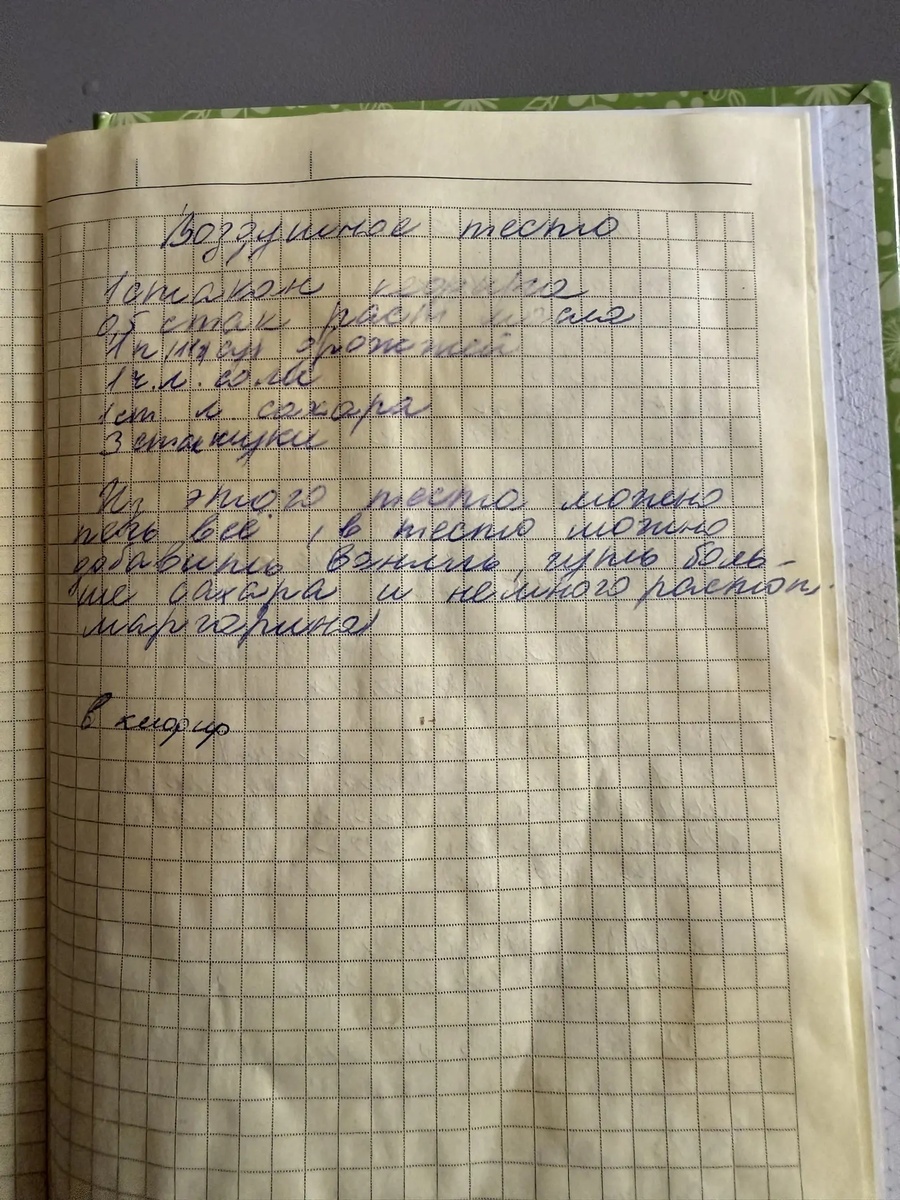 Воздушное тесто
1 стакан кефира
05 стак раст масла
1 п сух дрожжей
1 ч.л. соли
1 ст л сахара
3 стак муки
Из этого теста можно
печь всё, в тесто можно
добавить ваниль, чуть боль-
ше сахара и немного растоп.
маргарина
в кефир